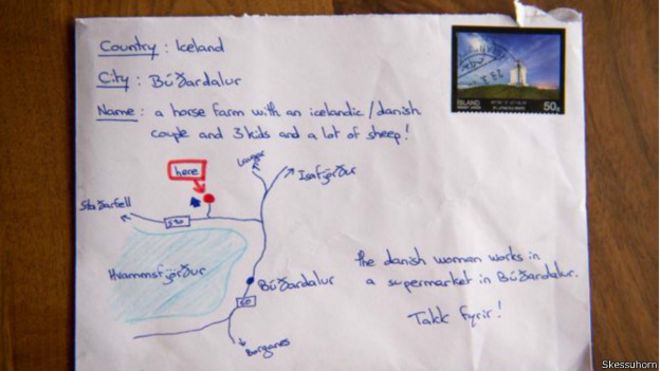 Country: Iceland
City: Búðardalur
Name: a horse farm with an icelandic/danish
couple and 3 kids and a lot of sheep!
ÍSLAND
50g
here
Laugar
Ísafjörður
Staðarfell
590
Hvammsfjörður
Búðardalur
60
Borganes
the danish woman works in
a supermarket in Búðardalur.
Takk fyrir!
Skessuhorn